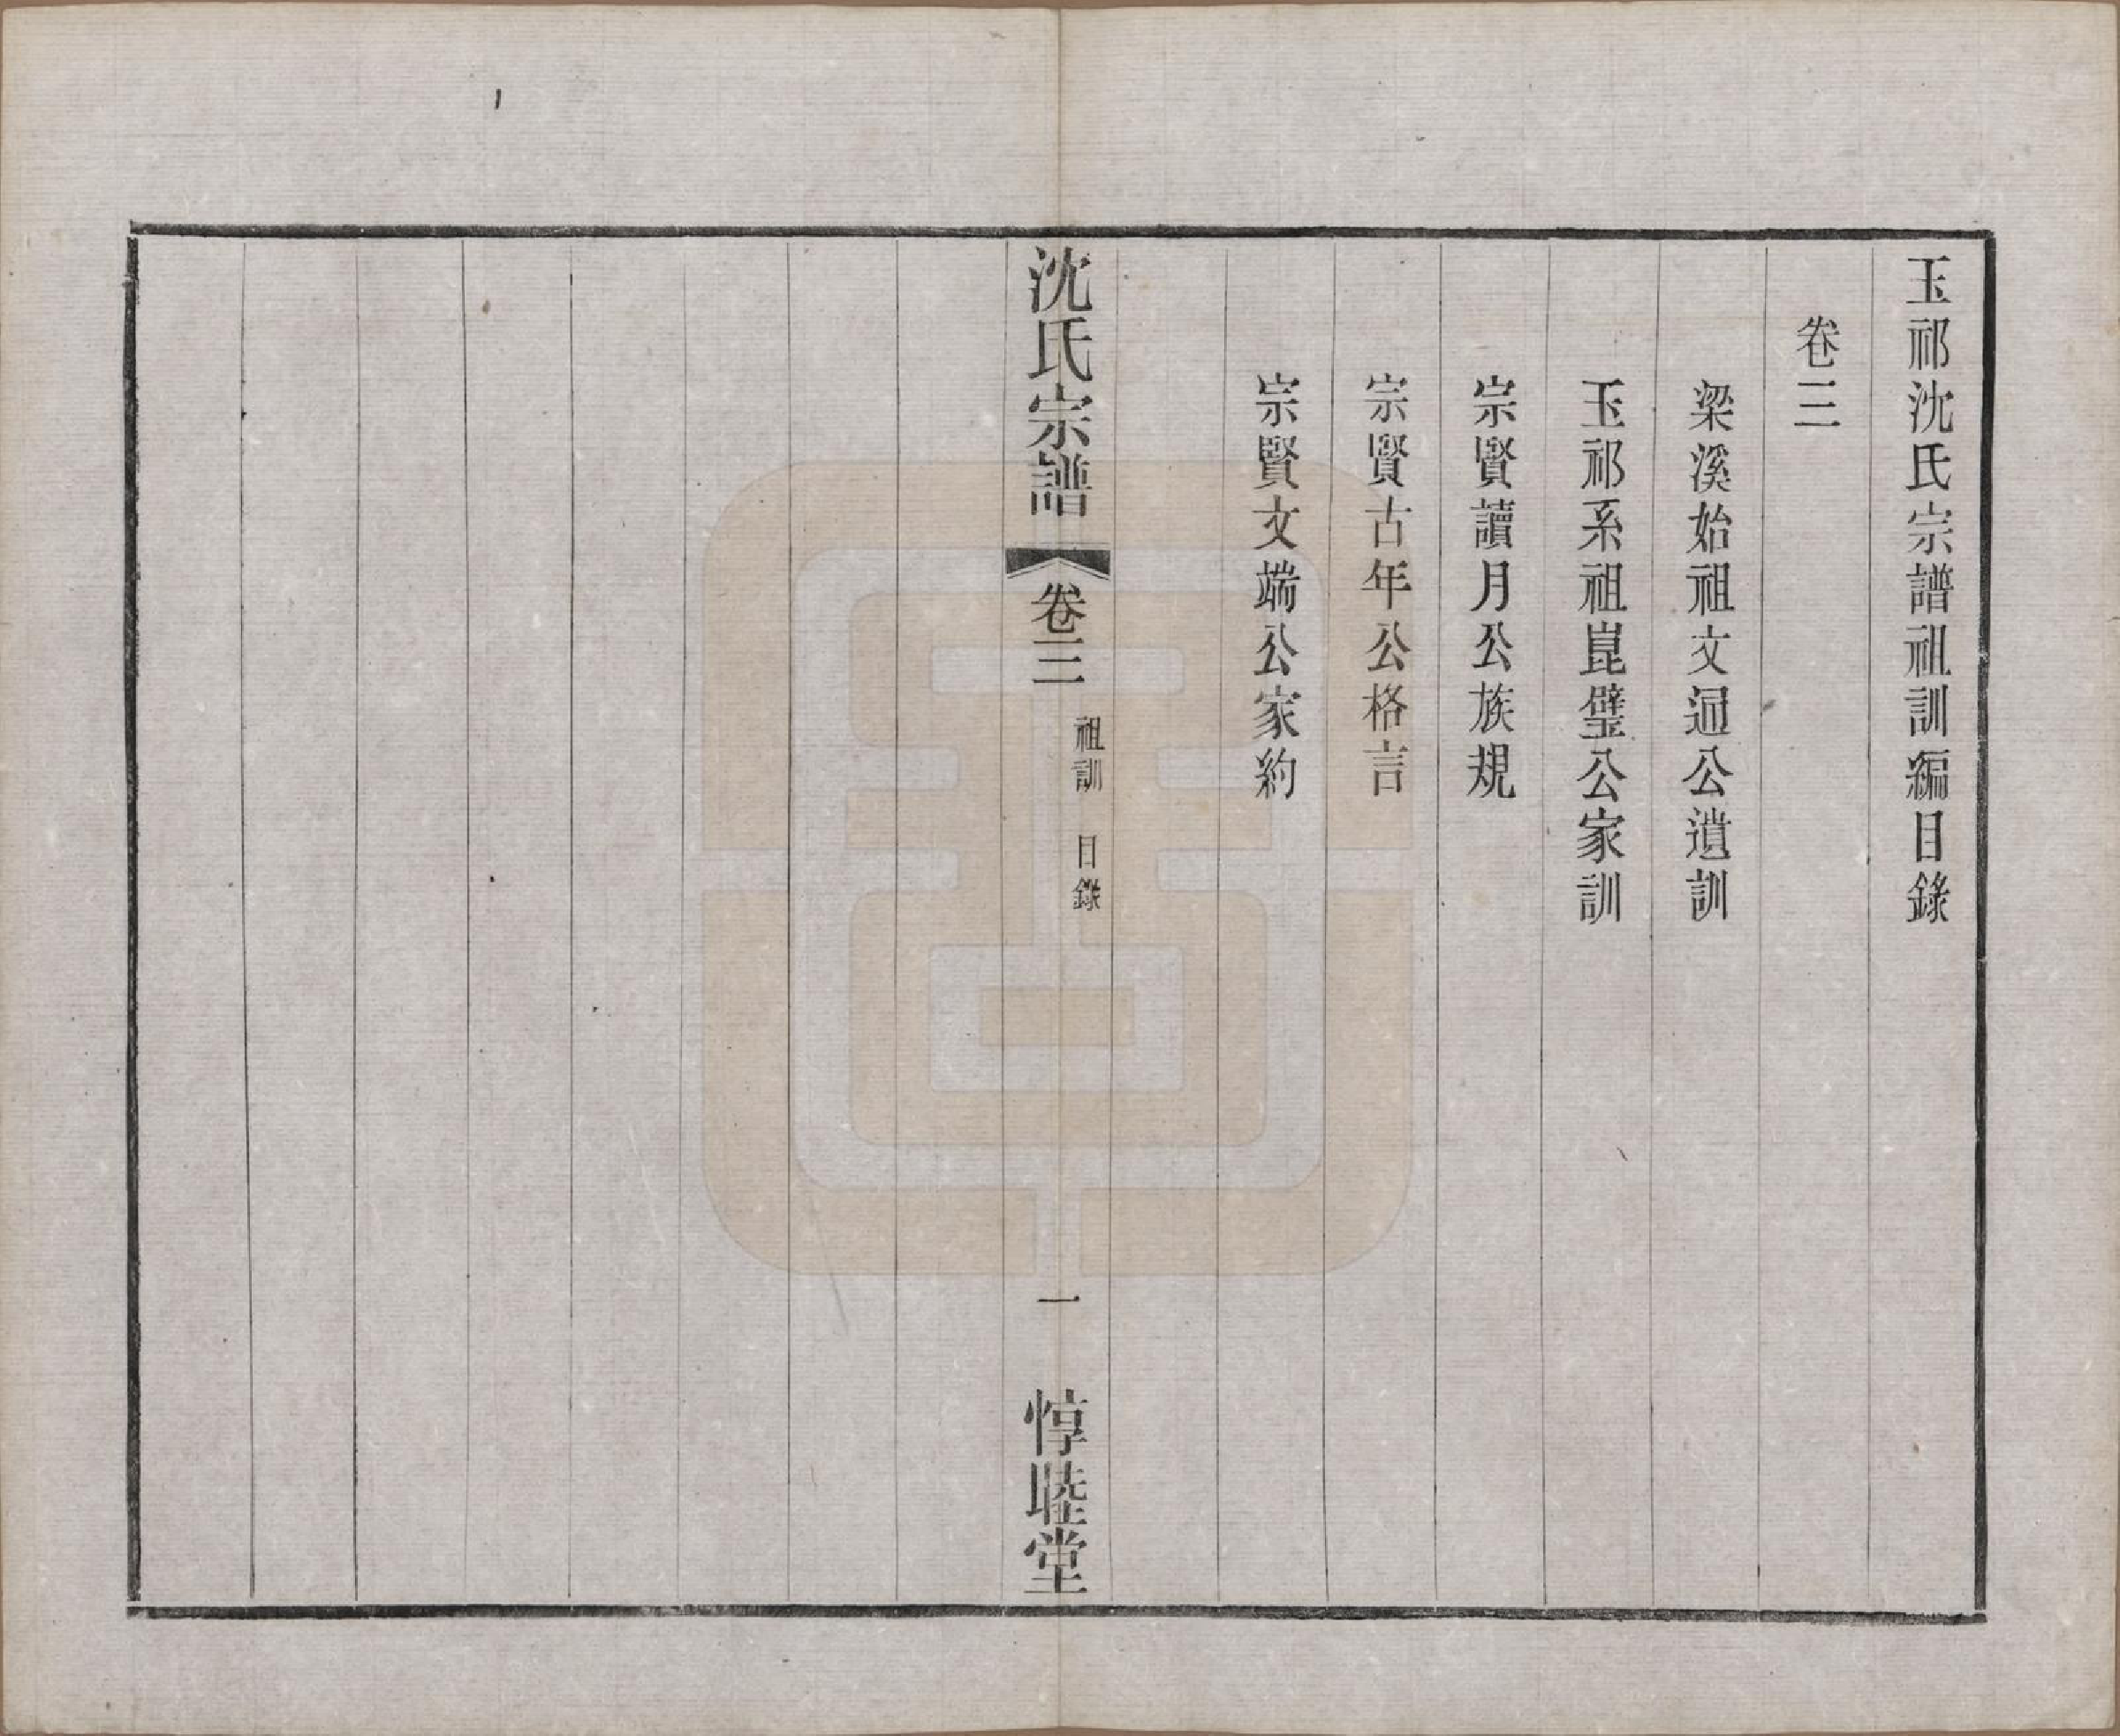 玉祁沈氏宗譜祖訓編目錄
卷三
梁溪始祖文通公遺訓
玉祁系祖崑璧公家訓
宗賢讀月公族規
宗賢古年公格言
宗賢文端公家約
沈氏宗譜 卷三 祖訓 目錄 一 惇睦堂